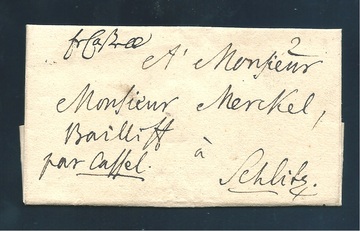 A' Monsieur
Monsieur Merckel,
Bailliff
à
par Cassel. Schlitz.